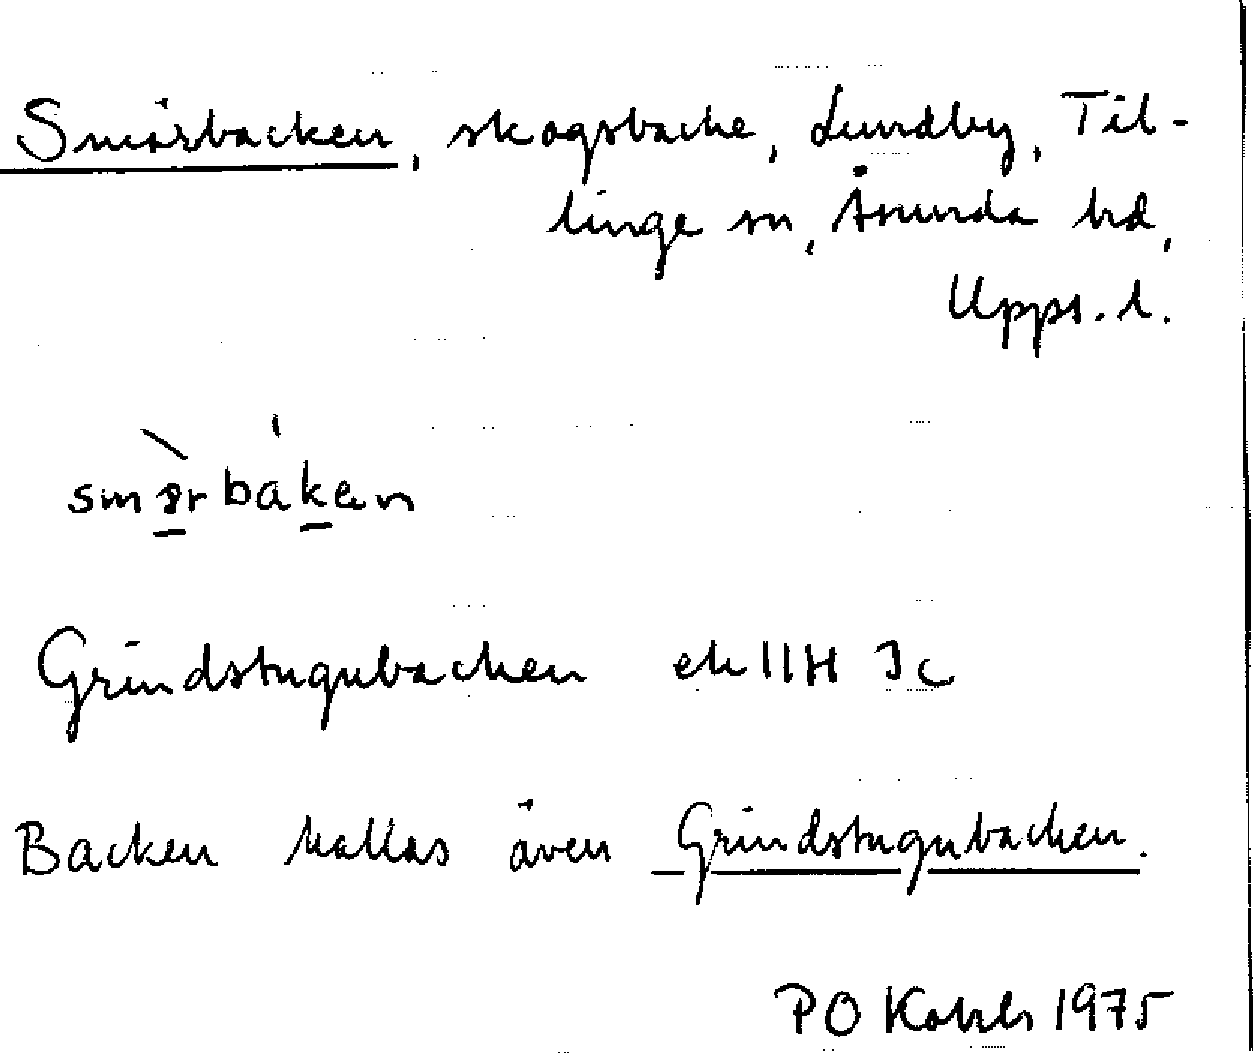 Smörbacken, skogsbacke, Lundby, Til-
linge sn, Åsunda hd,
Upps. l.
Grindstugubacken ek 11H 3c
Backen kallas även Grindstugubacken.
PO 1975